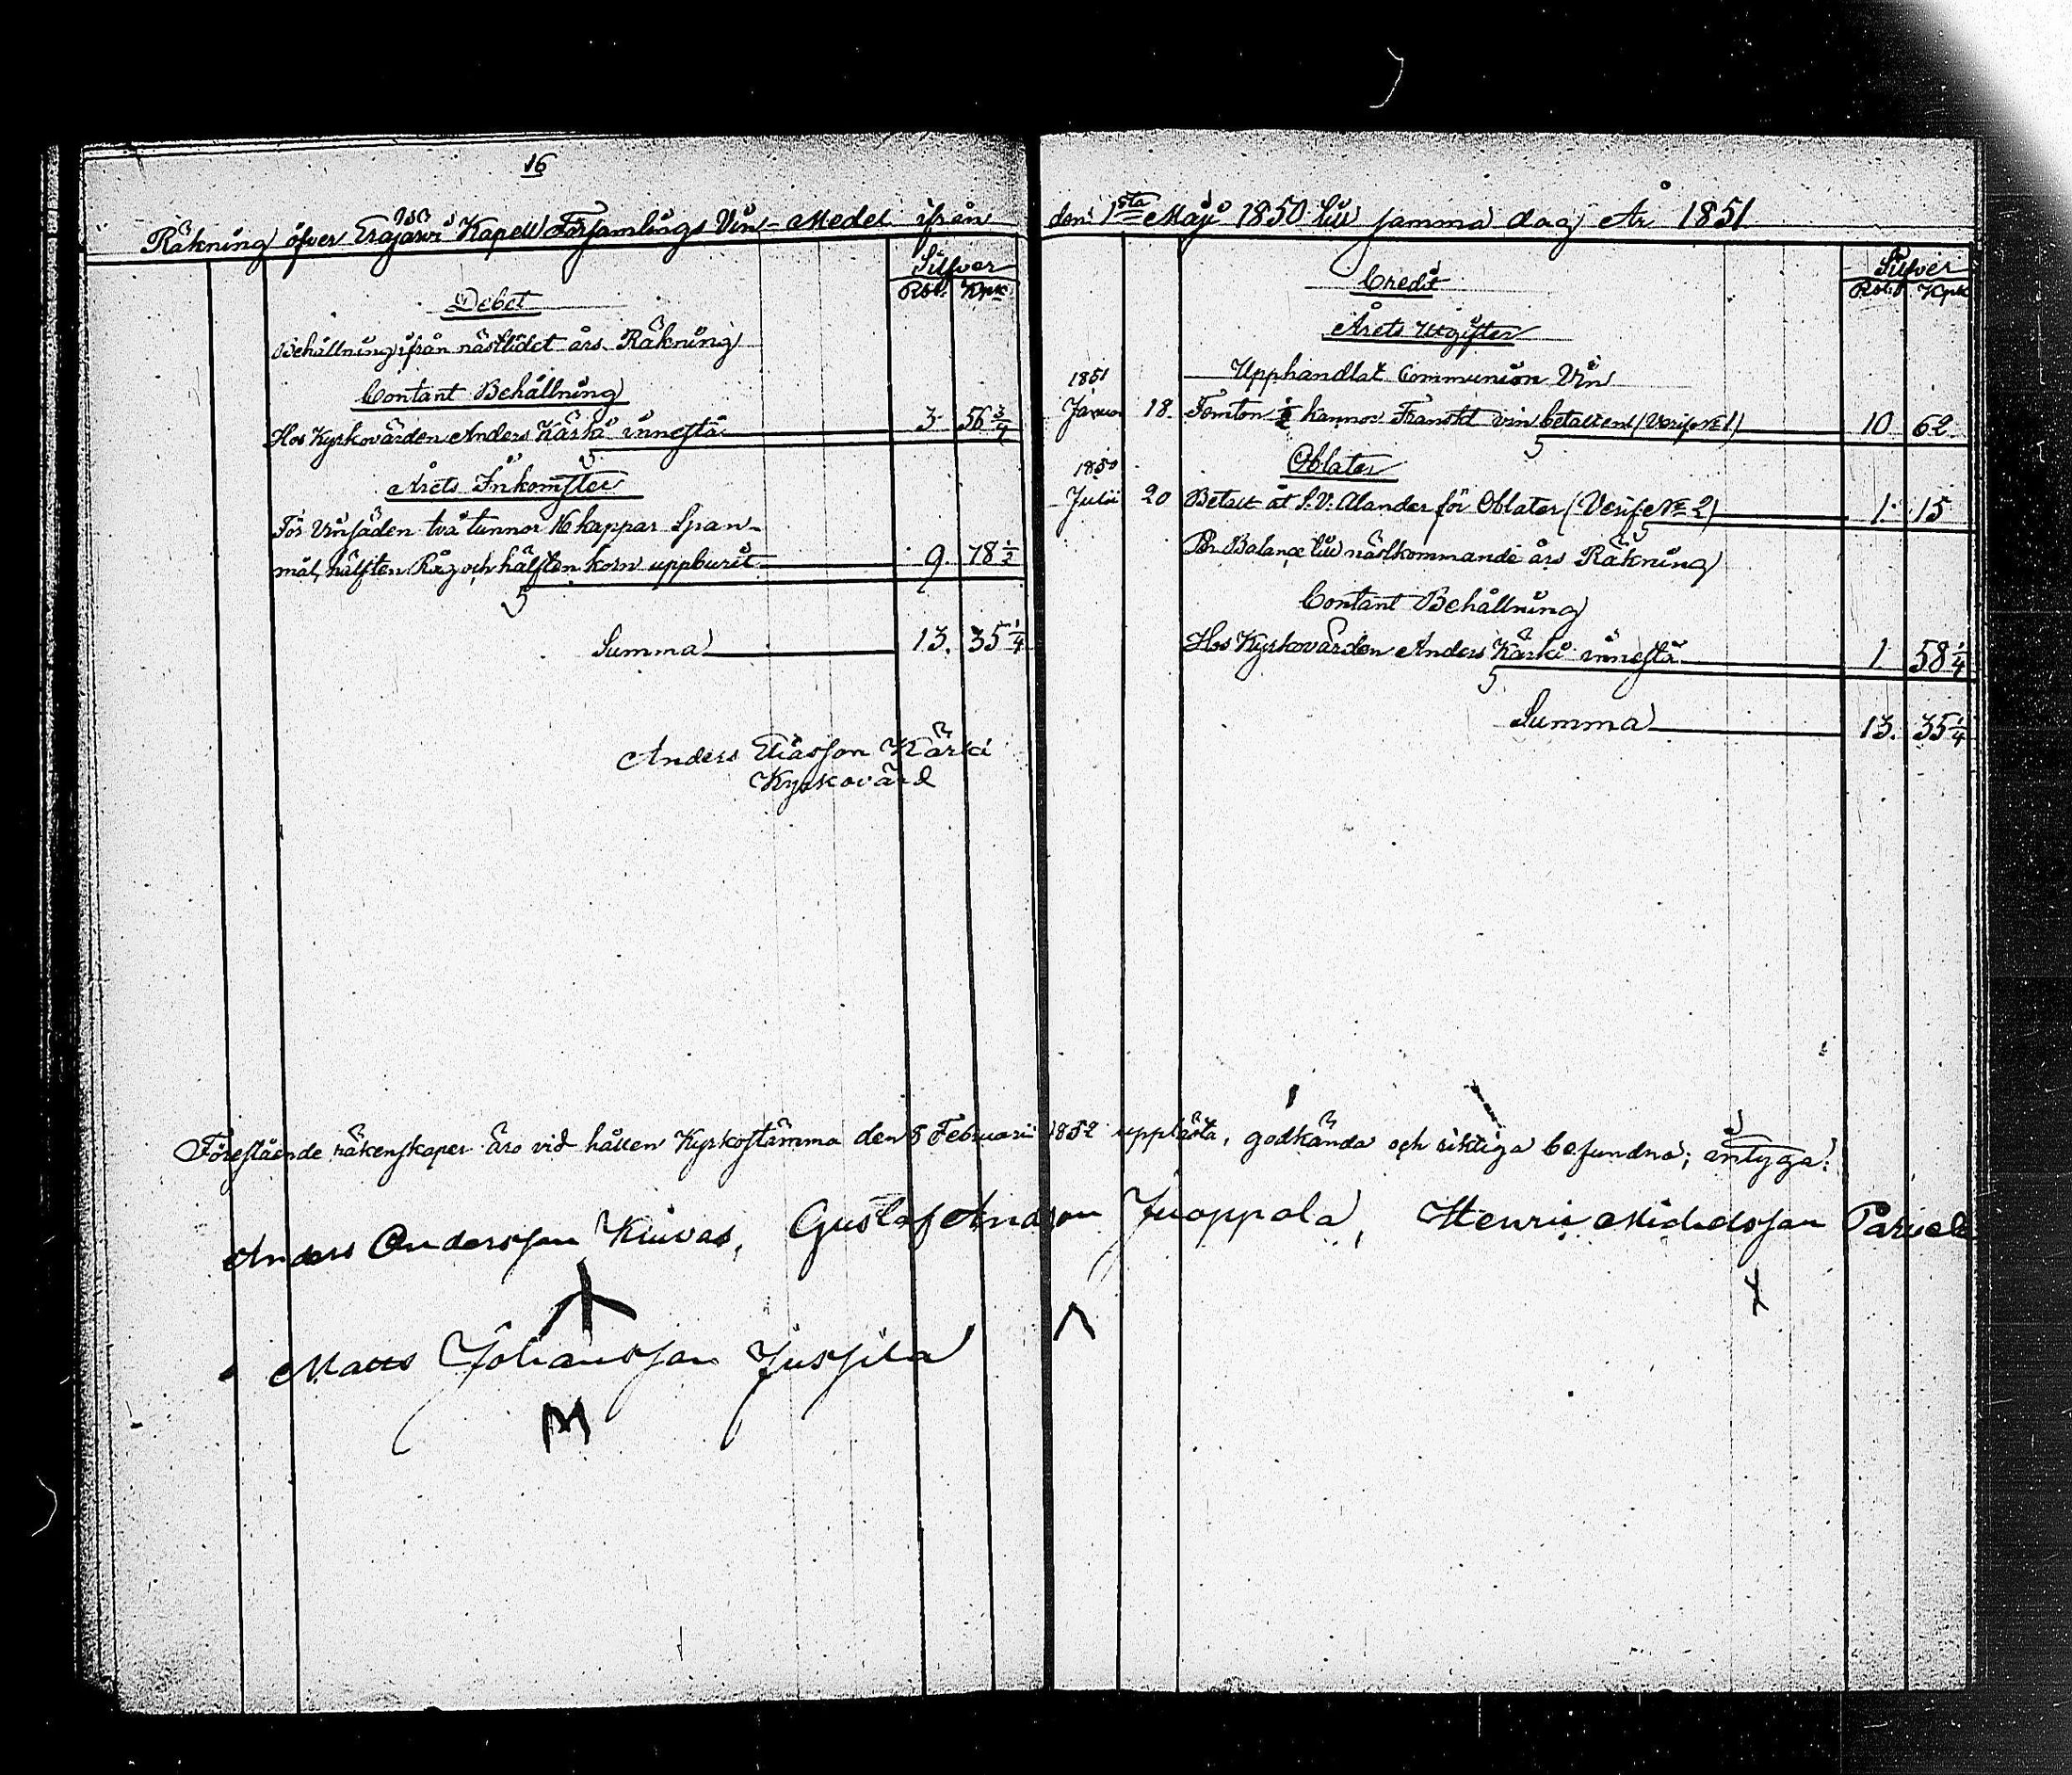 16
Räkning öfver Eräjärvi Kapell Församlings Vin-Medel ifrån
Silfver
Rbl. Kpk
Debet
Behållning ifrån nästlidet års Räkning
Contant Behållning
Hos Kyrkovärden Anders Kärki innestå 3 56 3/4
Årets Inkomster
För Vinsäden två tunnor 16 kappar Span-
mål, hälften Råg och hälften korn uppburit 9. 78 1/2
Summa 13. 35 1/4
Anders Eliasson Kärki
Kyrkovärd
den 1sta Maji 1850 till samma dag År 1851
Silfver
Rbl. Kpk
Credit
Årets Utgifter
Upphandlat Communion Vin
1851
Januar 18. Femton 1/2 kannor Franskt vin betalt enl (Verif. № 1) 10 62
1850
Oblater
Julii 20 Betalt åt S. V. Alander för Oblater (Verif. № 2) 1. 15
Pr Balance till nästkommande års Räkning
Contant Behållning
Hos Kyrkovärden Anders Kärki innestå 1 58 1/4
Summa 13. 35 1/4
Förestående räkenskaper äro vid hållen Kyrkostämma den 8 Februarii 1852 upplästa, godkända och riktiga befundna; intyga:
Anders Andersson Kiuvas, Gustaf Andsson Juoppala, Henric Michelsson
Matts Johansson Jussila
M